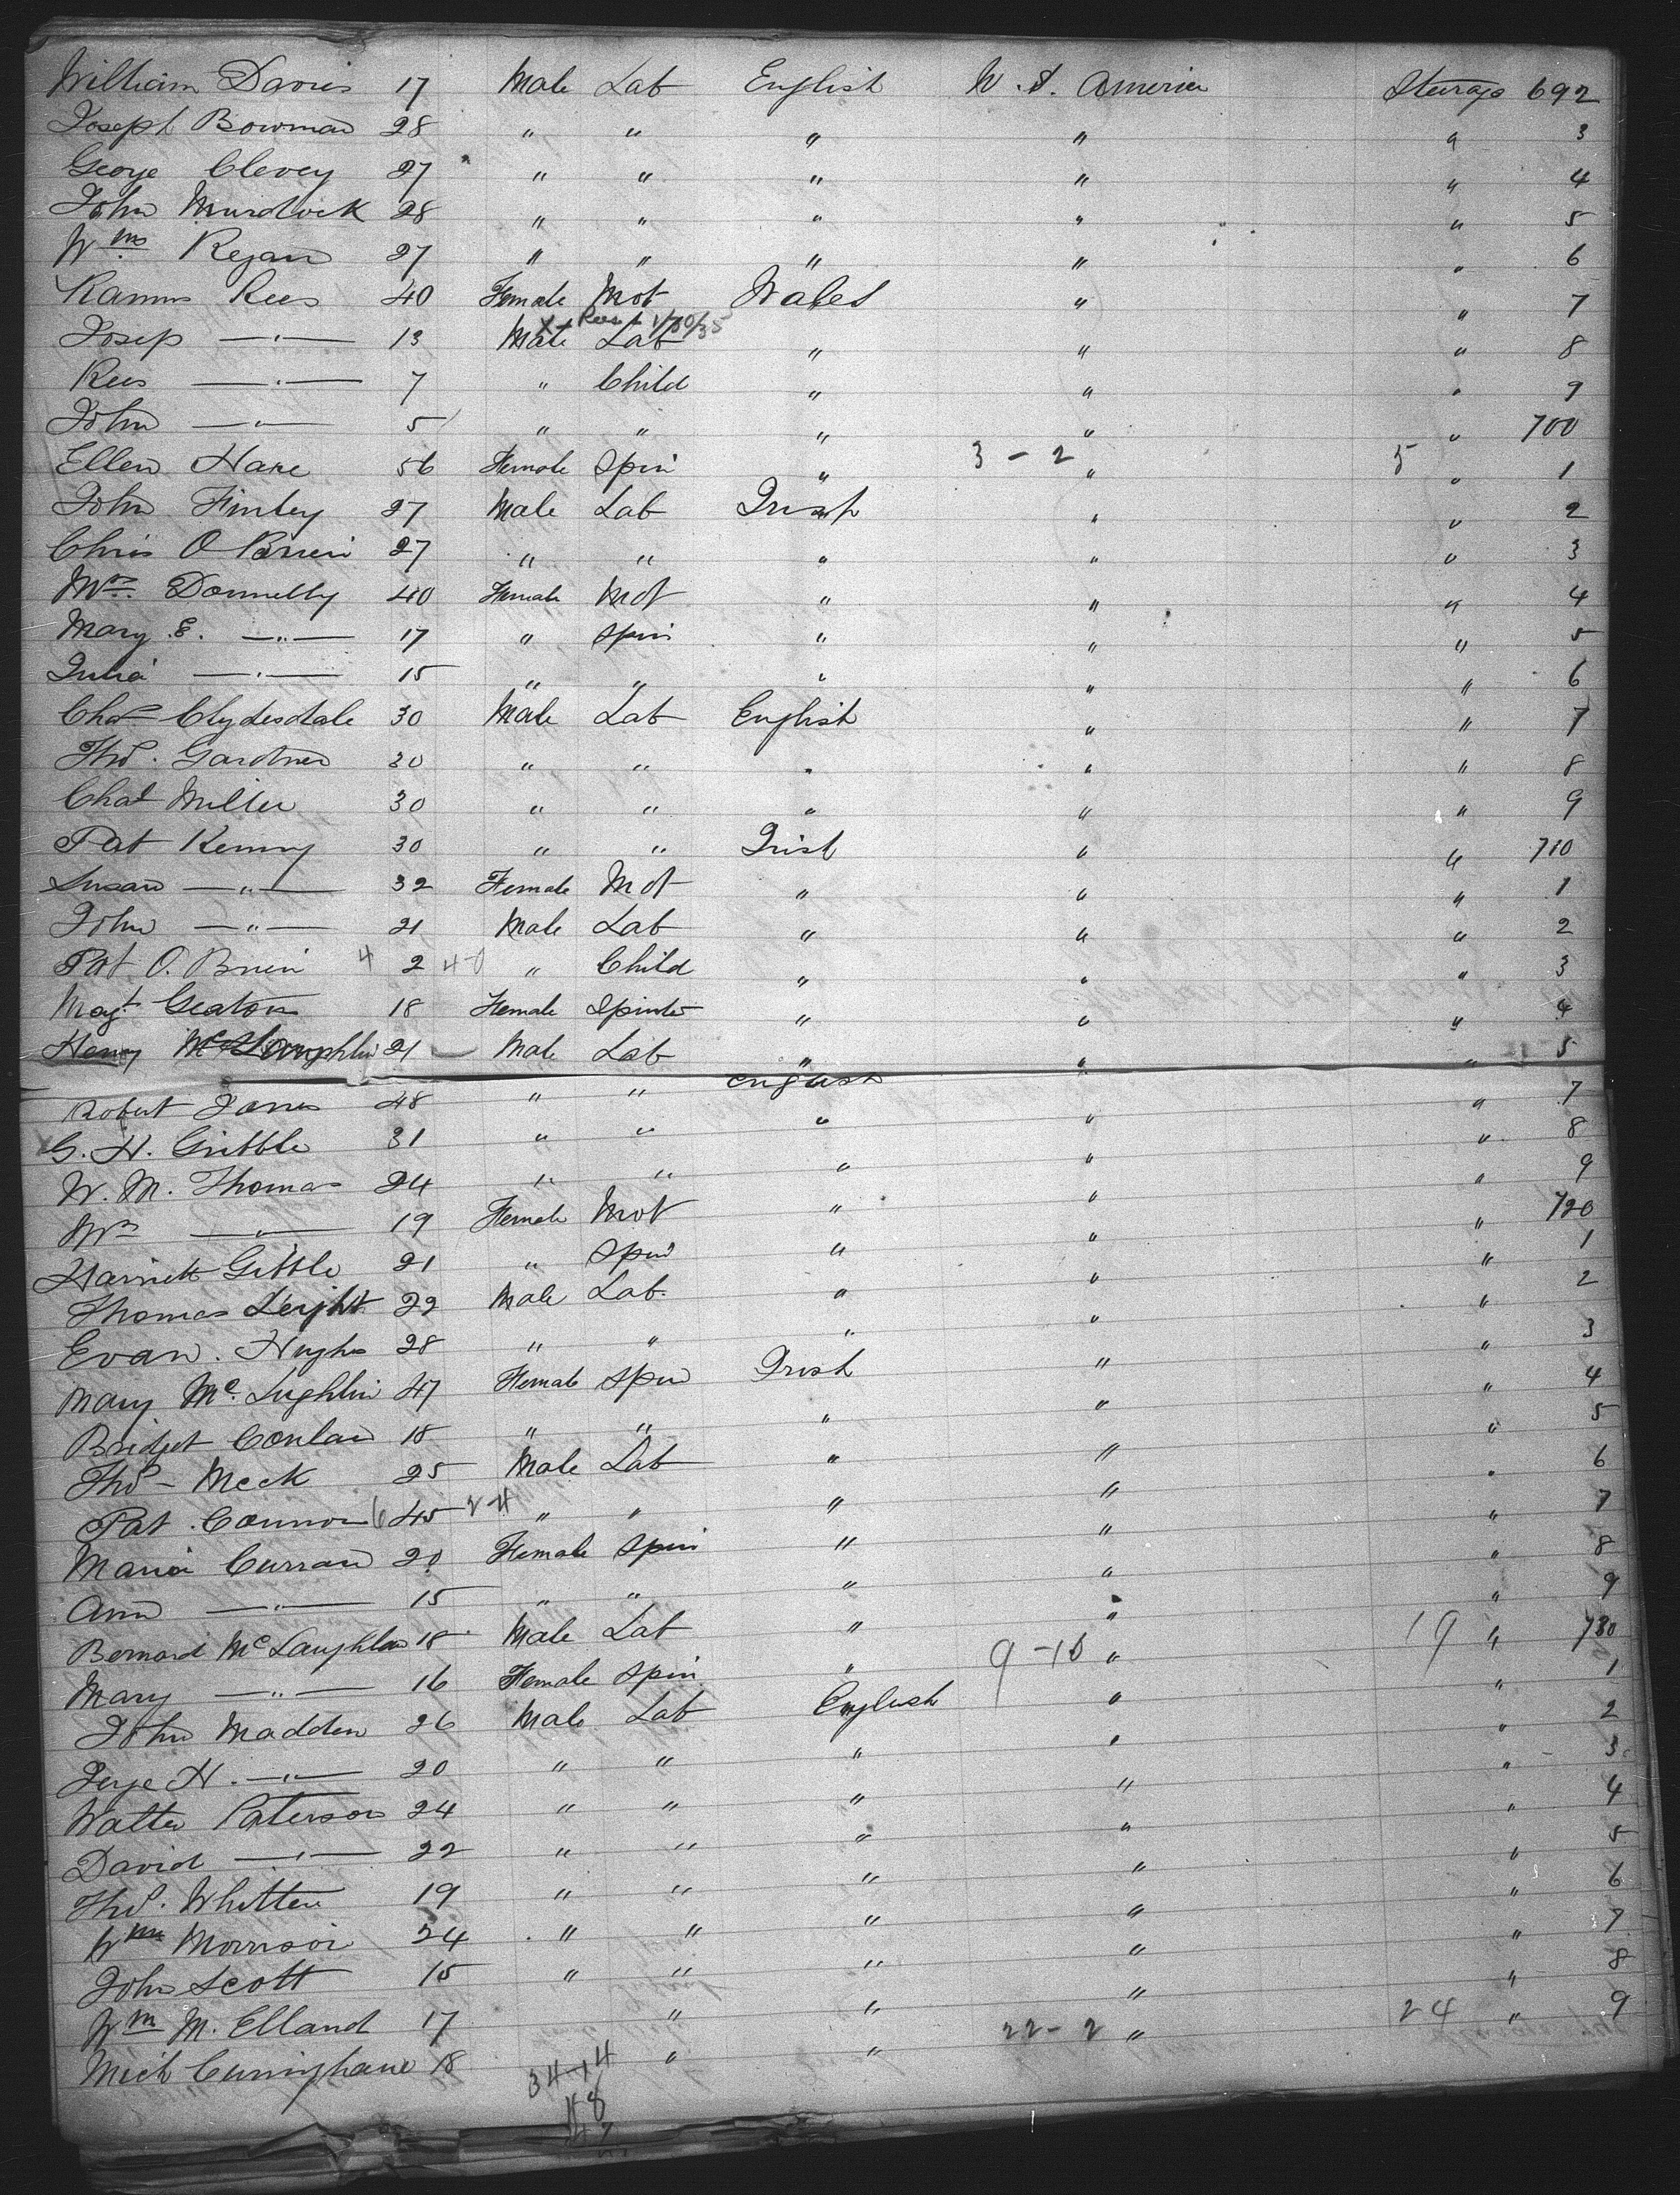 William Davies 17 Male Lab English U.S. America Steerage 692
Joseph Bowman 28 " " " " " 3
George Clevey 27 " " " " " 4
John Murdock 28 " " " " " 5
Wm Regan 27 " " " " " 6
Rees 40 Female Mot Wales " " 7
Josep —"— 13 Male Lab " " " 8
Rees —"— 7 " Child " " " 9
John —"— 5 " " " " " 700
Ellen Hare 56 Female Spin " 3 - 2 " 5 " 1
John Finley 27 Male Lab Irish " " 2
Chris O Brien 27 " " " " " 3
Mrs. Donnelly 40 Female Mot " " " 4
Mary E. —"— 17 " Spin " " " 5
Julia —"— 15 " " " " " 6
Chas Clydesdale 30 Male Lab English " " 7
Thos. Gardner 30 " " " " " 8
Chas Miller 30 " " " " " 9
Pat Kenny 30 " " Irish " " 710
Susan —"— 32 Female Mot " " " 1
John —"— 21 Male Lab " " " 2
Pat O. Brien 4 2 4-0 " Child " " " 3
Magt Geaton 18 Female Spinster " " " 4
Henry McLoughlin 21 Male Lab " " " 5
Robert Jones 48 " " English " " 7
G. H. Gribble 31 " " " " " 8
W. M. Thomas 24 " " " " " 9
Mrs —"— 19 Female Mot " " " 720
Harriett Gibble 21 " Spin " " " 1
Thomas Leight 22 Male Lab. " " " 2
Evan. Hughs 28 " " " " " 3
Mary Mc. Lughlin 47 Female Spin Irish " " 4
Bridget Conlan 18 " " " " " 5
Thos - Meck 25 Male Lab " " " 6
Pat. Connor 6 45 2-4 " " " " " 7
Maria Curran 20 Female Spin " " " 8
Ann —"— 15 " " " " " 9
Bernard McLaughlan 18 Male Lab " 9-10 " 19 " 730
Mary —"— 16 Female Spin " " " 1
John Madden 26 Male Lab English " " 2
H. —"— 20 " " " " " 3
Walter Paterson 24 " " " " " 4
David —"— 22 " " " " " 5
Thos. Whitten 19 " " " " " 6
Wm Morrison 24 " " " " " 7
John Scott 15 " " " " " 8
Wm M. Elland 17 " " 22-2 " 24 " 9
Mich Cuninghane 18 " "
34-14
48